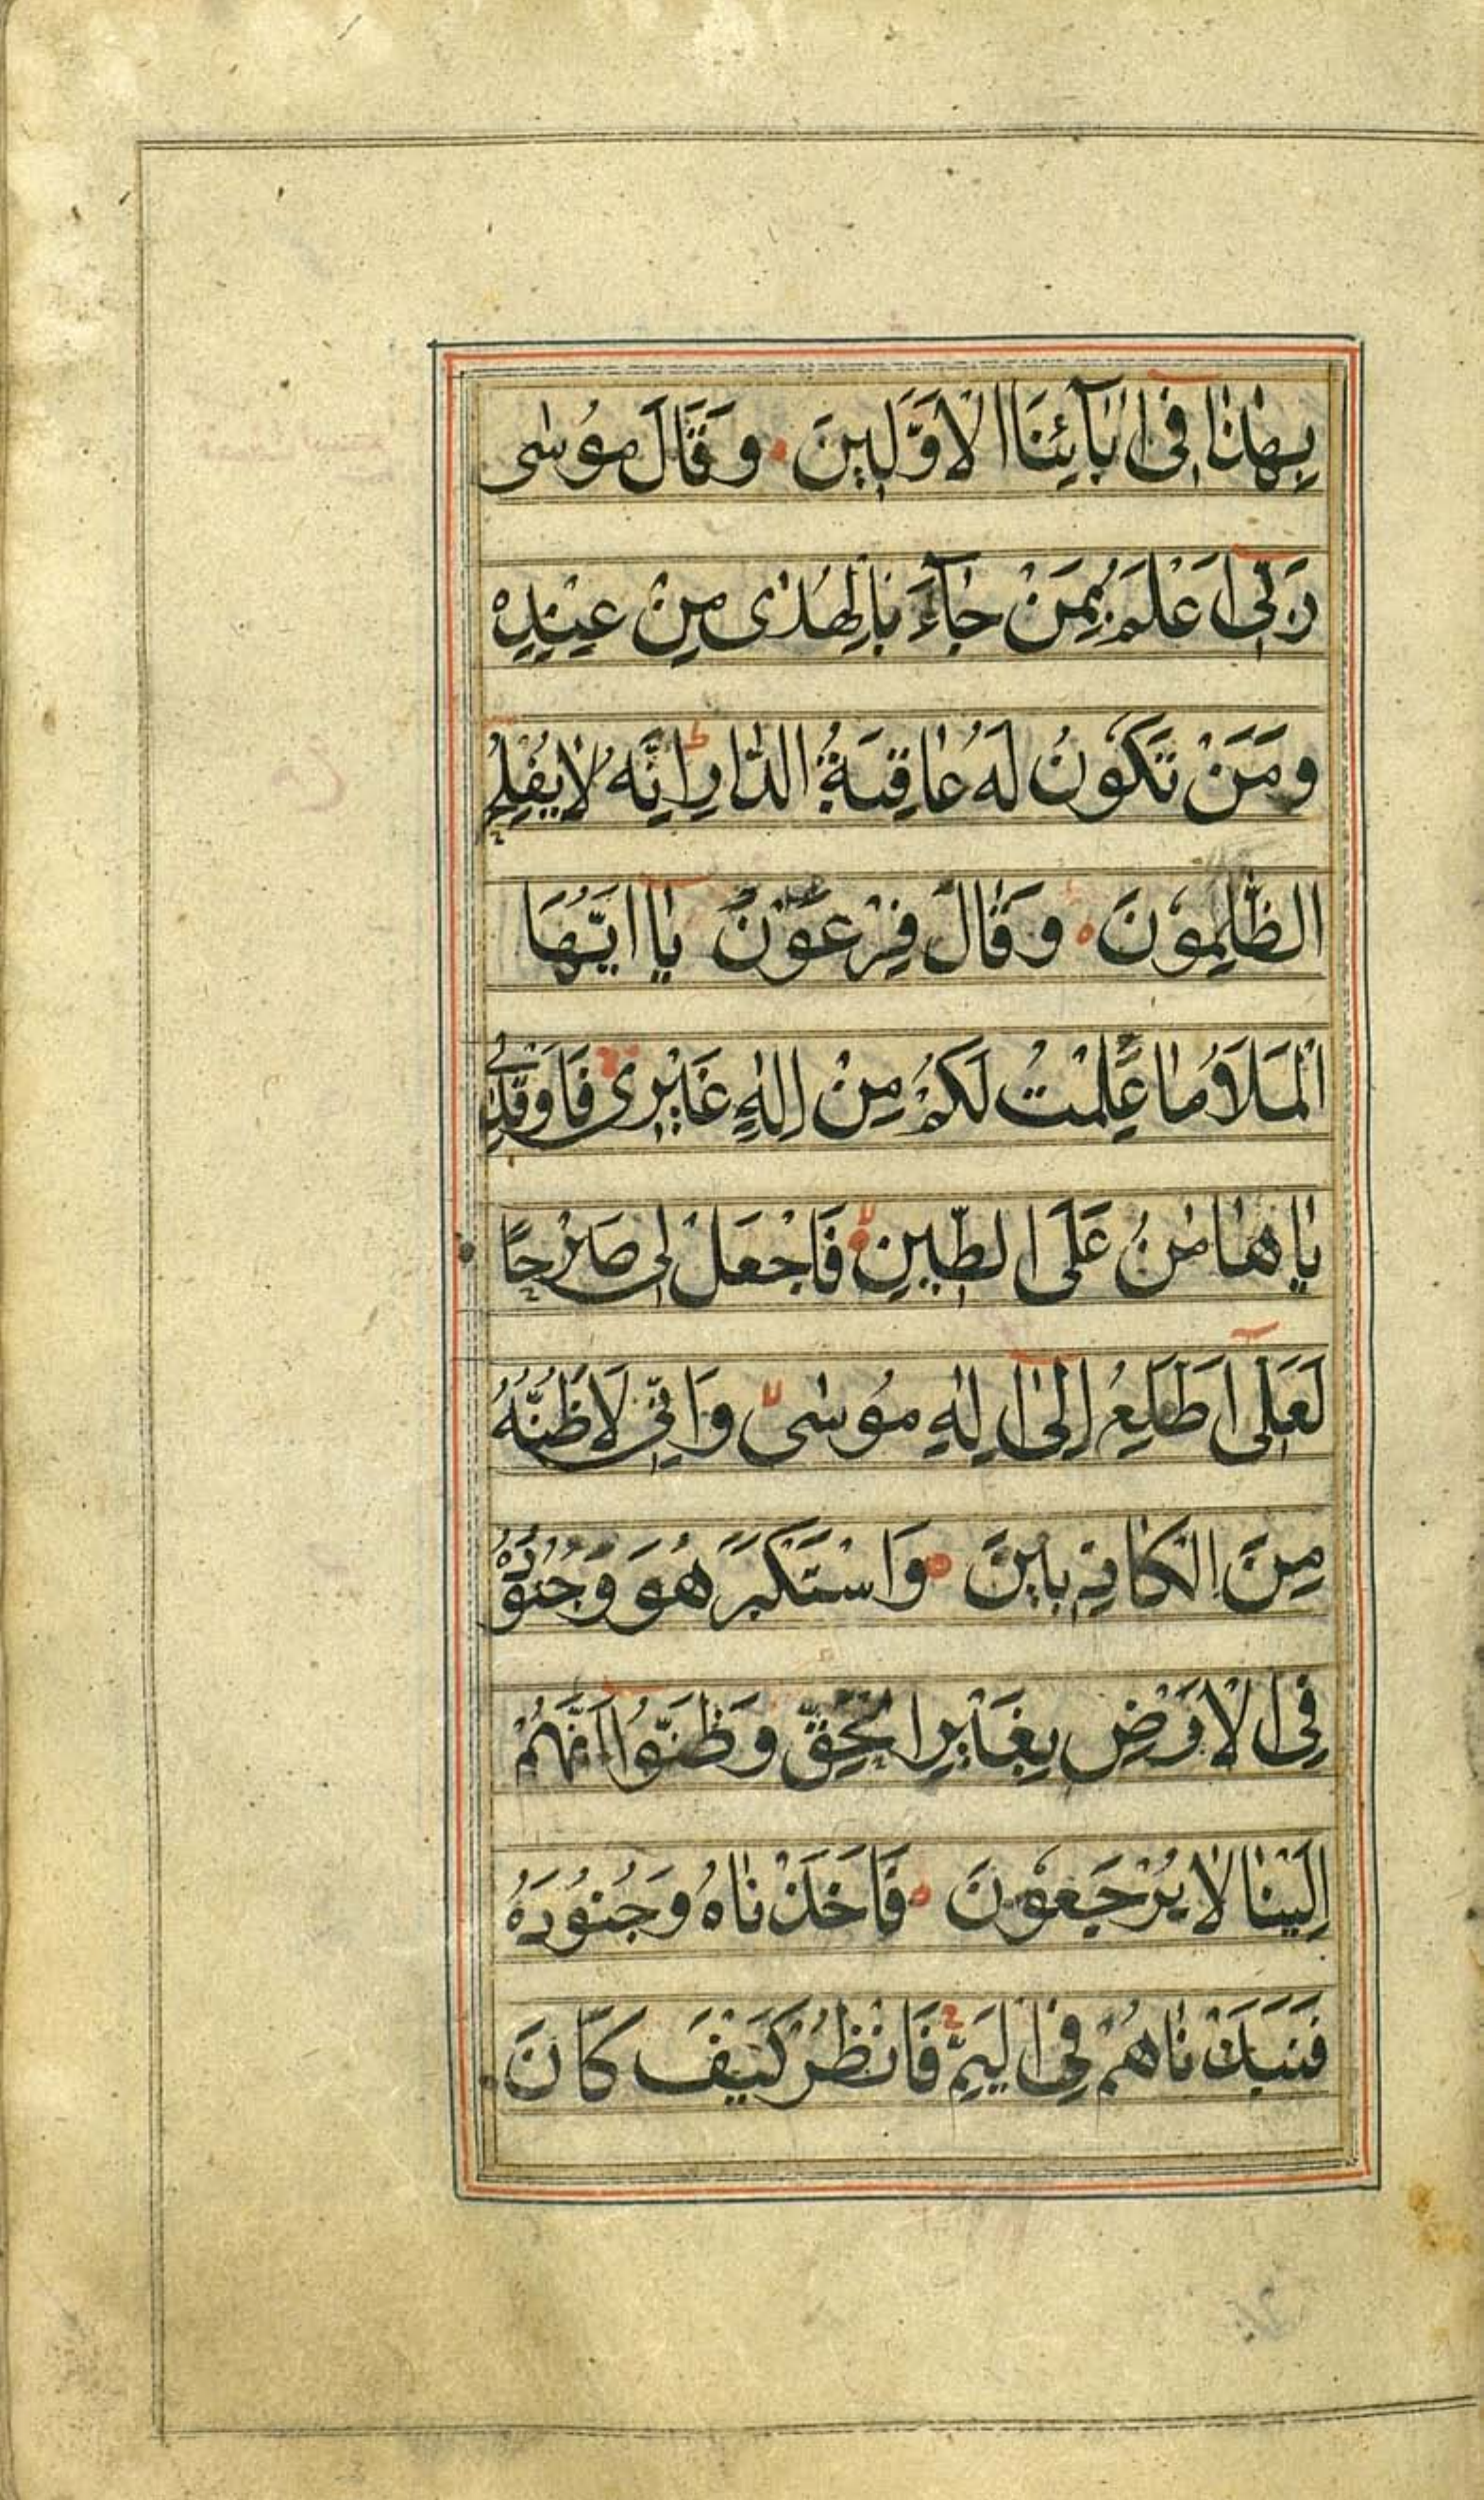 بِهٰذَا فِى اٰبَآئِنَا الْاَوَّلِينَ وَقَالَ مُوسٰى
رَبِّى اَعْلَمُ بِمَنْ جَآءَ بِالْهُدٰى مِنْ عِنْدِهِ
وَمَنْ تَكُونُ لَهُ عَاقِبَةُ الدَّارِ ط اِنَّهُ لَا يُفْلِحُ
الظَّالِمُونَ وَقَالَ فِرْعَوْنُ يَا اَيُّهَا
الْمَلَاُ مَا عَلِمْتُ لَكُمْ مِنْ اِلٰهٍ غَيْرِى فَاَوْقِدْ لِى
يَا هَامَانُ عَلَى الطِّينِ فَاجْعَلْ لِى صَرْحًا
لَعَلِّى اَطَّلِعُ اِلٰى اِلٰهِ مُوسٰى لا وَاِنِّى لَاَظُنُّهُ
مِنَ الْكَاذِبِينَ وَاسْتَكْبَرَ هُوَ وَجُنُودُهُ
فِى الْاَرْضِ بِغَيْرِ الْحَقِّ وَظَنُّوا اَنَّهُمْ
اِلَيْنَا لَا يُرْجَعُونَ فَاَخَذْنَاهُ وَجُنُودَهُ
فَنَبَذْنَاهُمْ فِى الْيَمِّ ج فَانْظُرْ كَيْفَ كَانَ